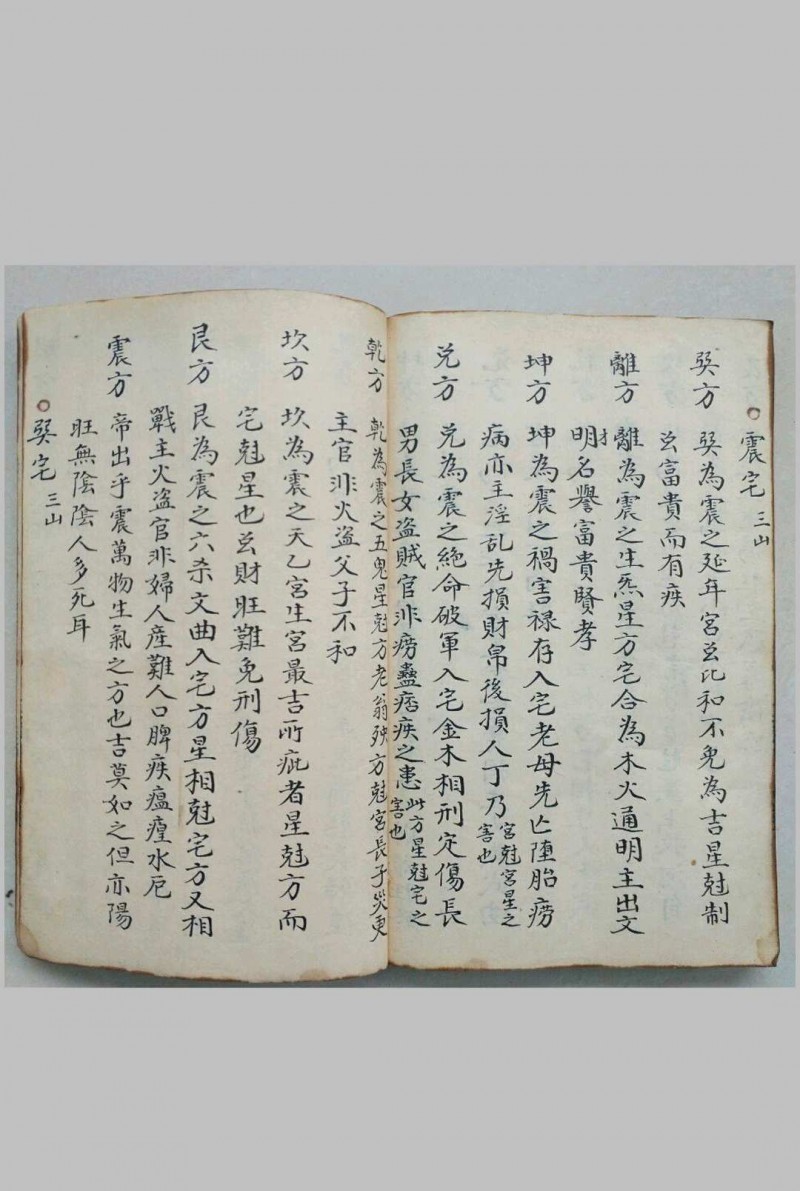 ○震宅三山
巽方 巽為震之延年宮玄比和不免為吉星尅制
玄富貴而有疾
離方 離為震之生炁星方宅合為木火通明主出文才
明名譽富貴賢孝
坤方 坤為震之禍害禄存入宅老母先亡墮胎癆
病亦主淫乱先損財帛後損人丁乃宮尅宮星之害也
兑方 兑為震之絶命破軍入宅金木相刑定傷長
男長女盗賊官非癆蠱痞疾之患此方星尅宅之害也
乾方 乾為震之五鬼星尅方老翁殃方尅宮長子災更
主官非火盗父子不和
坎方 坎為震之天乙宮生宮最吉所疵者星尅方而
宅尅星也玄財旺難免刑傷
艮方 艮為震之六杀文曲入宅方星相尅宅方又相
戰主火盗官非婦人産難人口脾疾瘟㾮水厄
震方 帝出乎震萬物生氣之方也吉莫如之但亦陽
旺無陰陰人多死耳
○巽宅三山